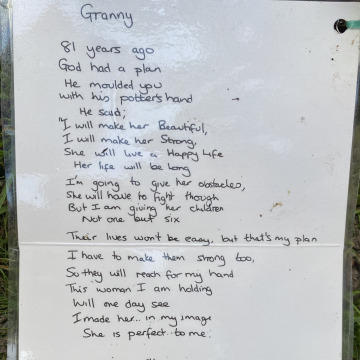 Granny
81 years ago
God had a plan
He moulded you
with his potter's hand
He said;
"I will make her Beautiful,
I will make her Strong,
She will live a Happy Life
Her life will be long
I'm going to give her obstacles,
She will have to fight though
But I am giving her children
Not one but six
Their lives won't be easy, but that's my plan
I have to make them strong too,
So they will reach for my hand
This woman I am holding
Will one day see
I made her... in my image
She is perfect to me.